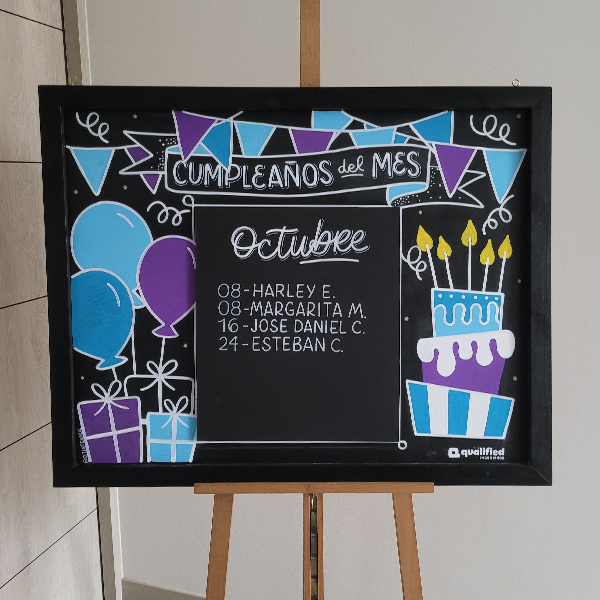 CUMPLEAÑOS del MES
Octubre
08-HARLEY E.
08-MARGARITA M.
16-JOSE DANIEL C.
24-ESTEBAN C.
qualified
INGENIEROS